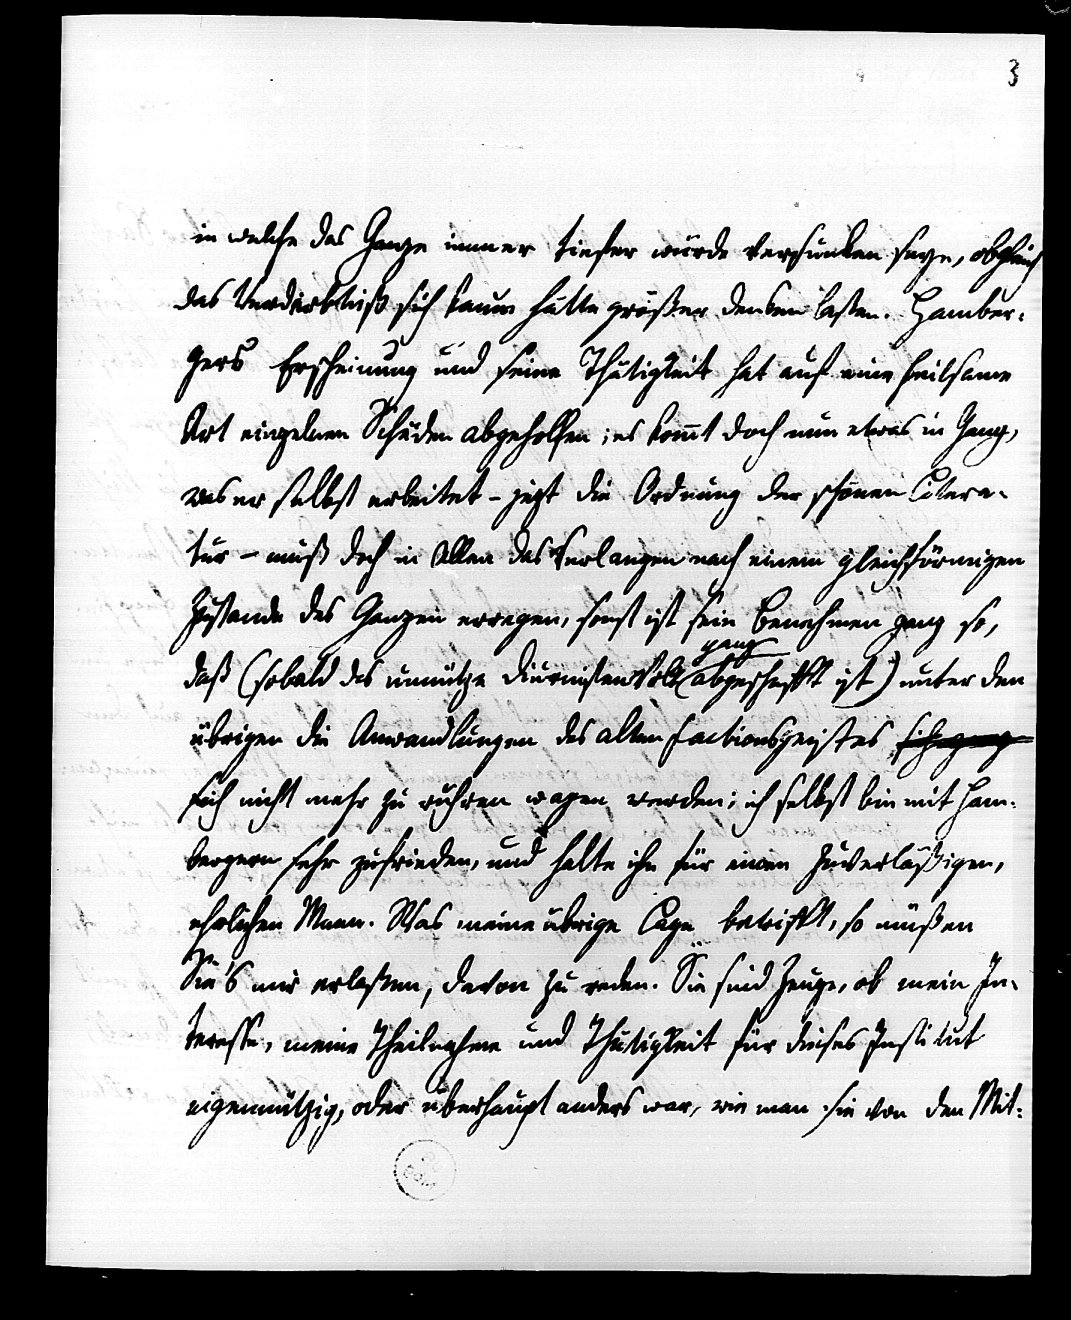 3
in welche das Ganze immer tiefer würde versunken seyn, obgleich
das Verderbniß sich kaum hätte größer denken laßen. Hamber-
gers Erscheinung und seine Thätigkeit hat auf eine heilsame
Art einzelnen Schäden abgeholfen; es komt doch nun etwas in Gang,
was er selbst arbeitet – jezt die Ordnung der schönen Litera-
tur – muß doch in Allen das Verlangen nach einem gleichförmigen
Zustande des Ganzen erregen, sonst ist sein Benehmen ganz so,
ganz
daß (sobald das unnütze Diurnisten Volk abgeschafft ist) unter den
übrigen die Anwandlungen des alten Factionsgeistes
sich nicht mehr zu rühren wagen werden; ich selbst bin mit Ham-
bergern sehr zufrieden, und halte ihn für einen zuverläßigen,
ehrlichen Mann. Was meine übrige Lage betrifft, so müßen
Sie's mir erlaßen, davon zu reden. Sie sind Zeuge, ob mein In-
teresse, meine Theilnahme und Thätigkeit für dieses Institut
eigennützig, oder überhaupt anders war, wie man sie von den Mit-